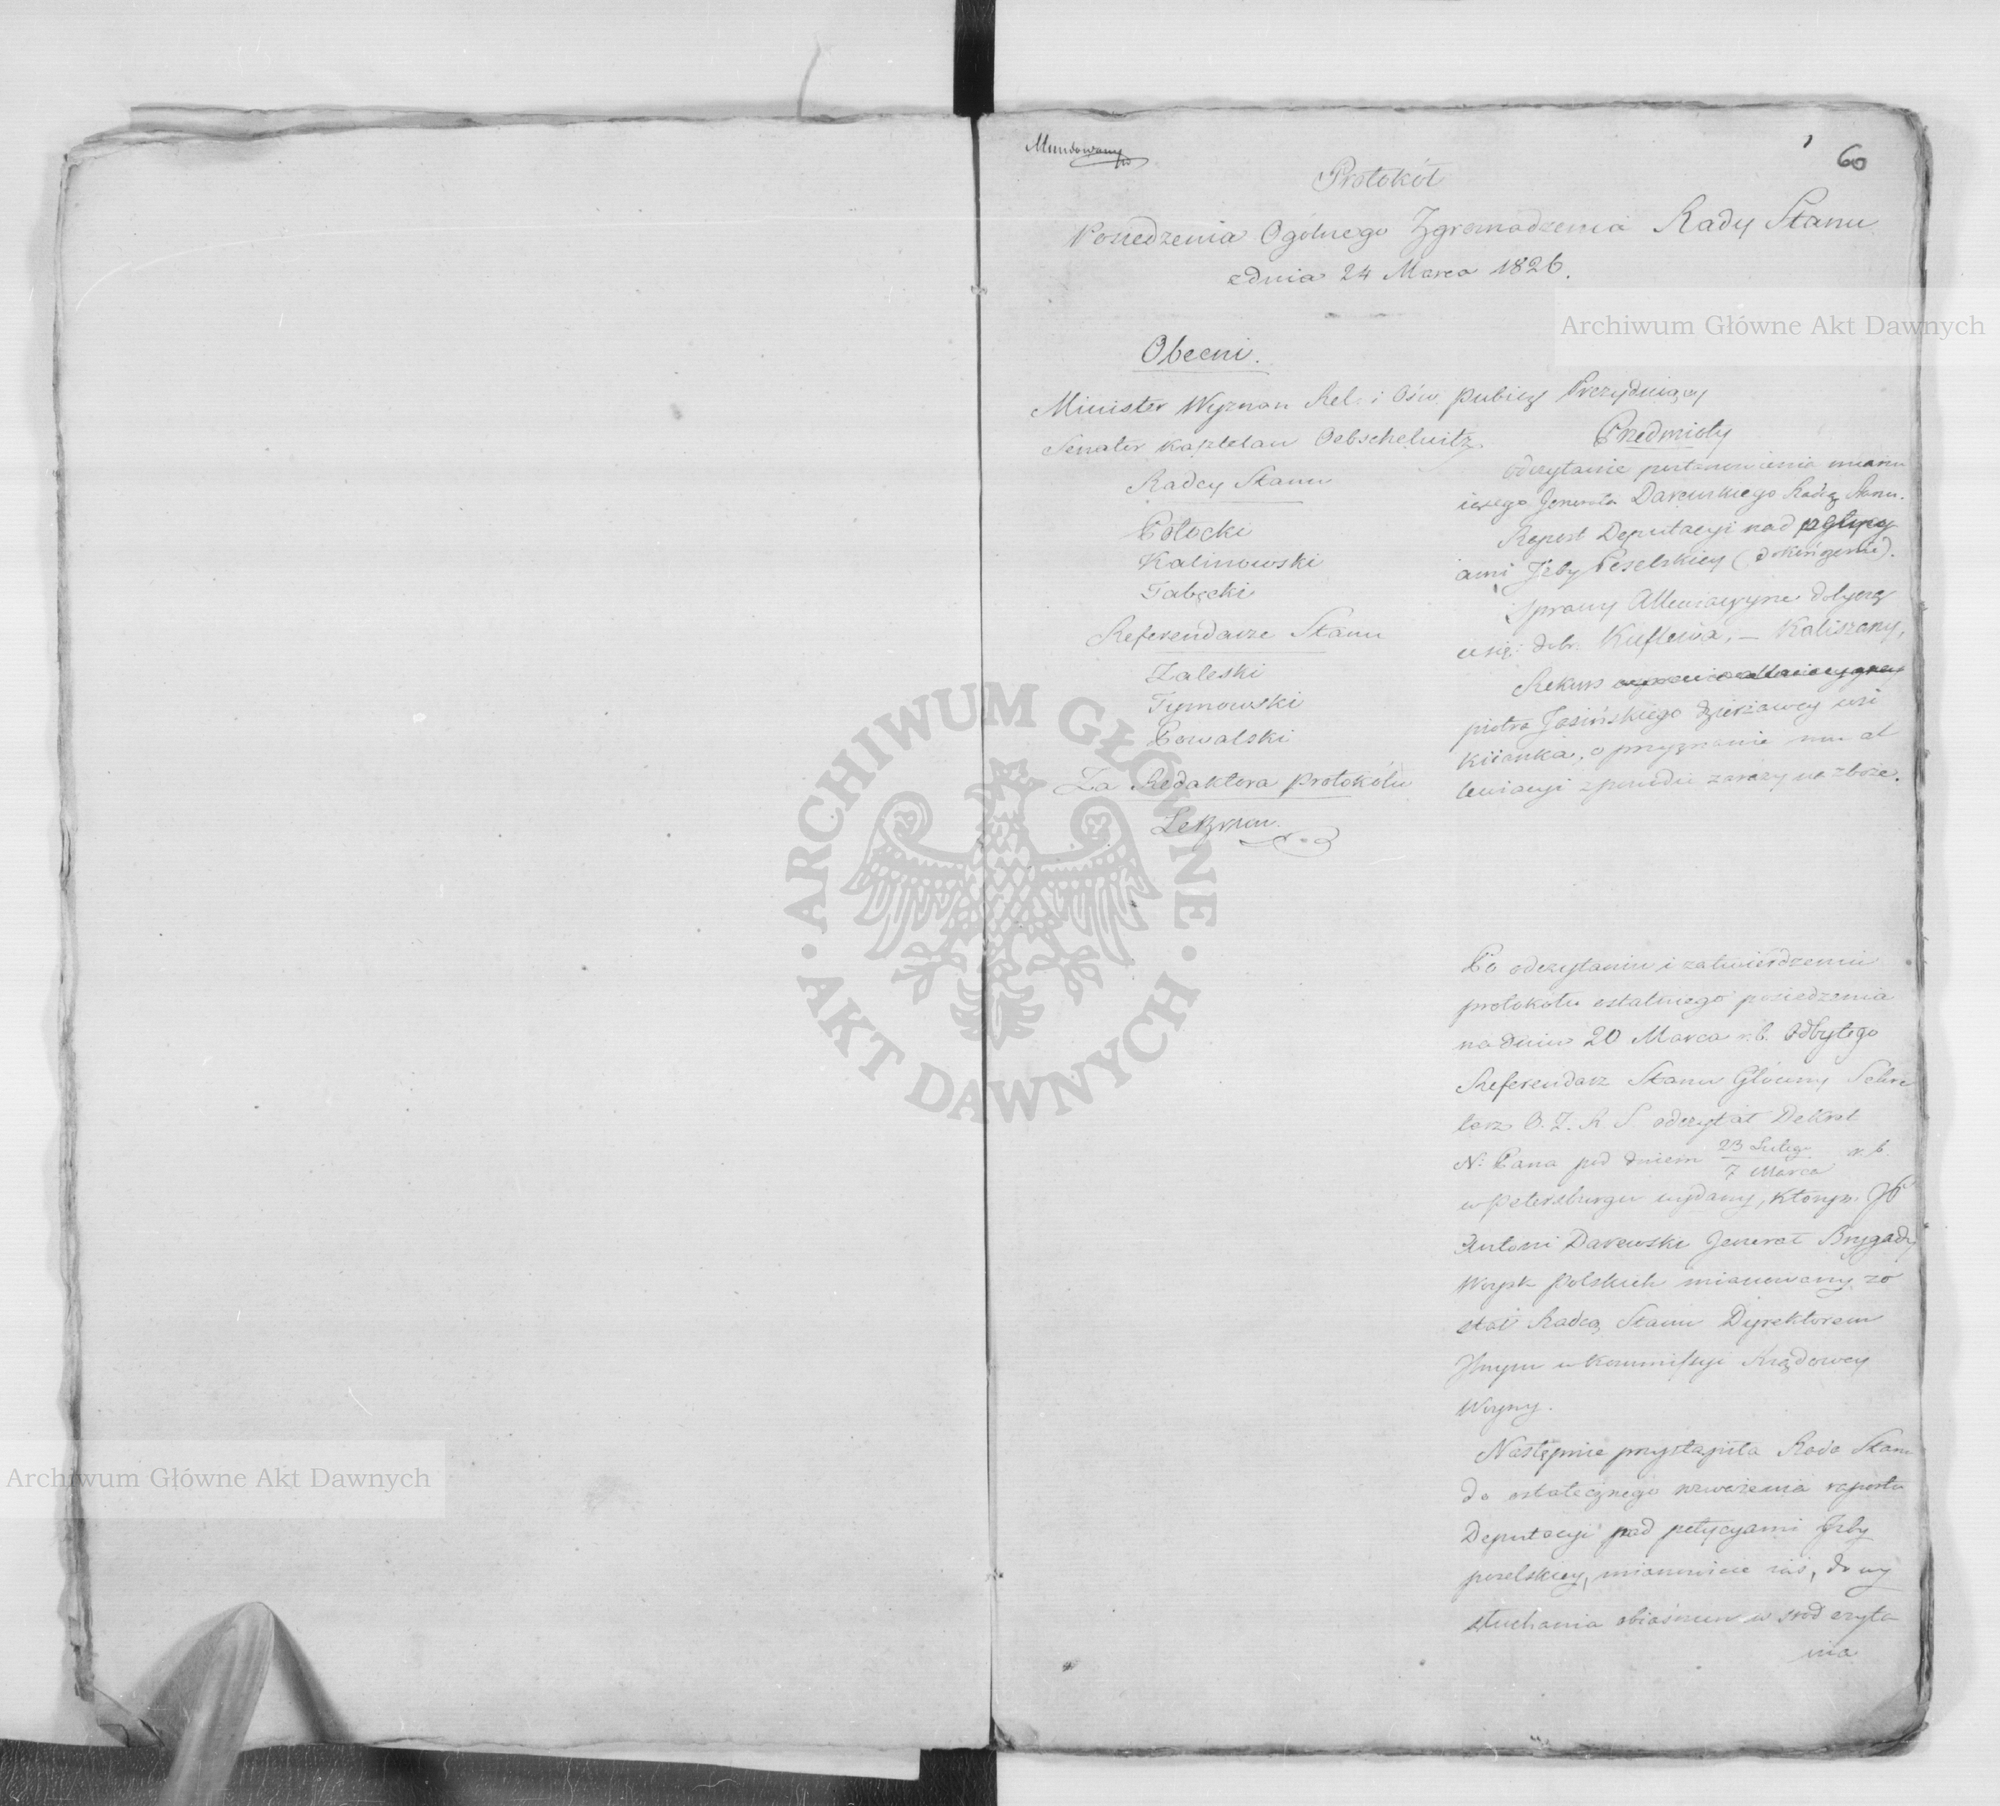 Mundowany
60
Protokół
Posiedzenia Ogólnego Zgromadzenia Rady Stanu
z dnia 24 Marca 1826.
Obecni.
Minister Wyznan Rel: i Ośw. publicz Prezyduiący
Senator Kasztelan Oebschelwitz
Radcy Stanu
Potocki
Kalinowski
Tabęcki
Referendarze Stanu
Zaleski
Tymowski
Kowalski
Za Redaktora protokółu
Przedmioty
odczytanie postanowienia mianu
iącego Jenerała Darewskiego Radcą Stanu.
Raport Deputacyi nad petycy
ami Izby Poselskiey (dokończenie).
Sprawy Allewiacyyne dotyczą
ce się: dóbr. Kuflewa, – Kaliszany,
Rekurs
piotra Jasińskiego dzierżawcy wsi
Kiianka, o przyznanie mu al
lewiacyi z powodu zarazy na zboże.
Po odczytaniu i zatwierdzeniu
protokółu ostatniego posiedzenia
na dniu 20 Marca r. b. odbytego
Referendarz Stanu Główny Sekre
tarz O. Z. R S. odczytał Dekret
N: Pana pod dniem 23 Lutego / 7 Marca r. b.
w Petersburgu wydany, którym JP
Antoni Darewski Jenerał Brygady
Woysk polskich mianowany zo
stał Radcą Stanu Dyrektorem
Jlnym w Kommissyi Rządowey
Woyny.
Następnie przystąpiła Rada Stanu
do ostatecznego rozważenia raportu
Deputacyi nad petycyami Izby
poselskiey, mianowicie zaś, do wy
słuchania obiaśnień w śród czyta
nia
Archiwum Główne Akt Dawnych
Archiwum Główne Akt Dawnych
ARCHIWUM GŁÓWNE AKT DAWNYCH